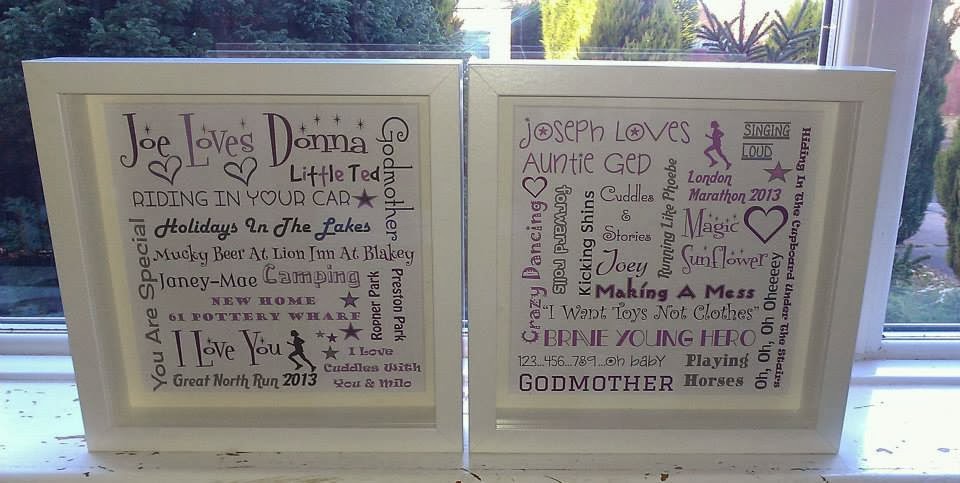 Joe Loves Donna
Godmother
Little Ted
RIDING IN YOUR CAR
Holidays In The Lakes
You Are Special
Mucky Beer At Lion Inn At Blakey
Janey-Mae
Camping
NEW HOME
61 POTTERY WHARF
Ropner Park
Preston Park
I Love You
Great North Run 2013
I Love
Cuddles With
You & Milo
Joseph Loves
Auntie Ged
SINGING
LOUD
London
Marathon 2013
Hiding In The Cupboard Under The Stairs
Crazy Dancing
forward rolls
Kicking Shins
Cuddles
&
Stories
Running Like Phoebe
Joey
Magic
Sunflower
Making A Mess
"I Want Toys Not Clothes"
BRAVE YOUNG HERO
Oh, Oh, Oh, Oheeeey
123...456...789...Oh baby
Playing
Horses
GODMOTHER